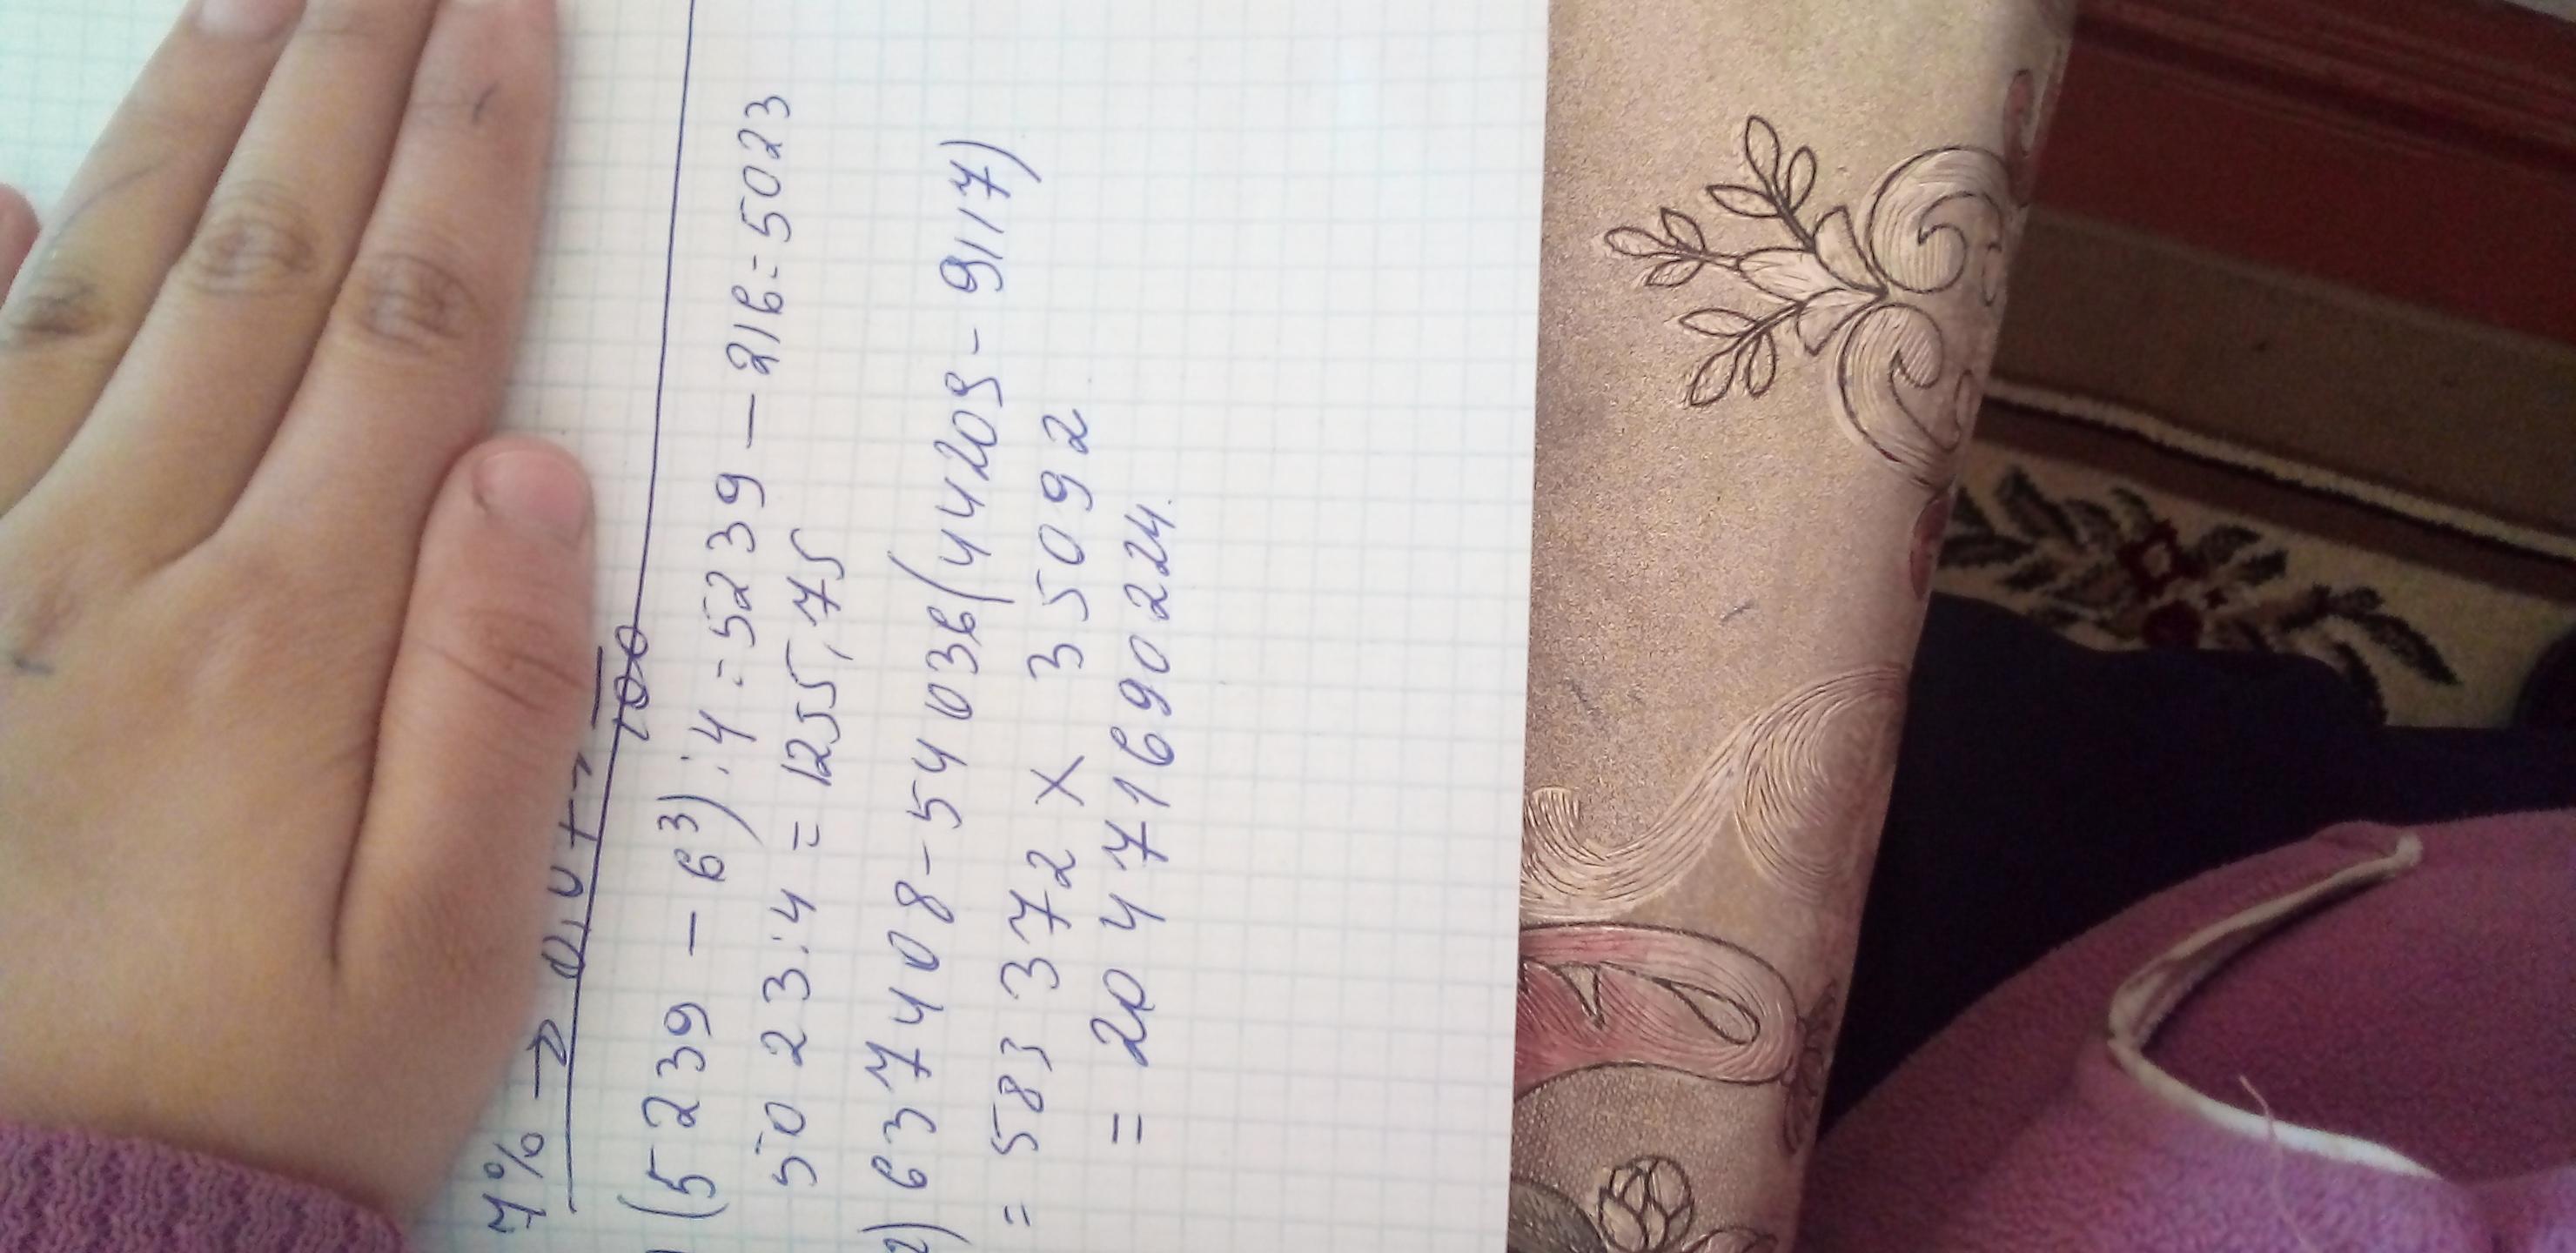 7% → 0,07
100
(5239 - 6³) : 4 = 5239 - 216 = 5023
5023 : 4 = 1255,75
2) 637408 - 54036 (44209 - 9117)
= 583372 × 35092
= 20471690224.